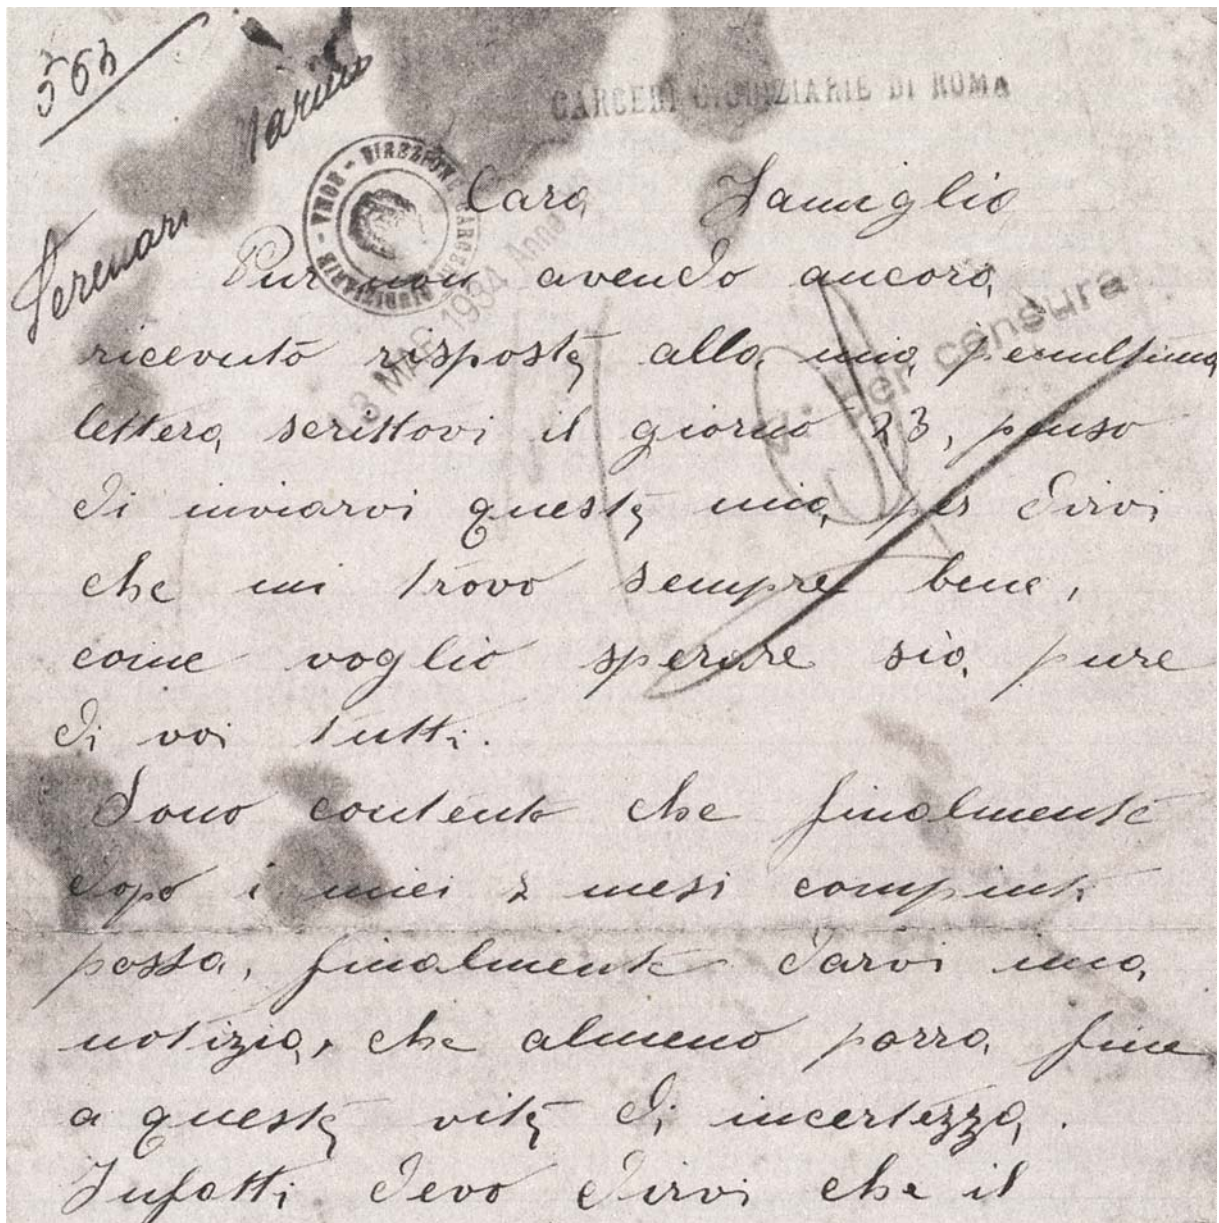 563
Serenari Mario
CARCERI GIUDIZIARIE DI ROMA
DIREZIONE CARCERI GIUDIZIARIE - ROMA
3 MAR 1934 Anno
V. Per censura
Cara Famiglia
Pur non avendo ancora
ricevuto risposta alla mia penultima
lettera scrittovi il giorno 23, penso
di inviarvi questa mia per dirvi
che mi trovo sempre bene,
come voglio sperare sia pure
di voi tutti.
Sono contento che finalmente
dopo i miei 2 mesi compiuti
possa, finalmente darvi una
notizia, che almeno porrà fine
a questa vita di incertezza.
Infatti devo dirvi che il